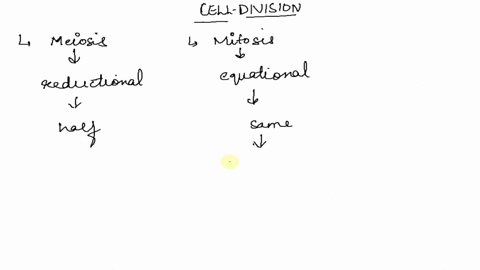 CELL-DIVISION
↳ Meiosis
↓
reductional
↓
half
↳ Mitosis
↓
equational
↓
same
↓